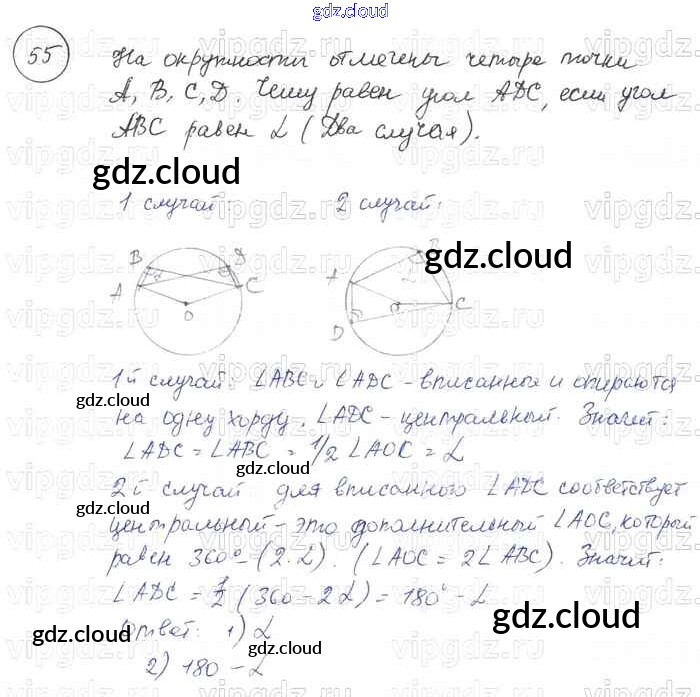 gdz.cloud
55
На окружности отмечены четыре точки
A, B, C, D. Чему равен угол ADC, если угол
ABC равен α (Два случая).
gdz.cloud
1 случай:
2 случай:
gdz.cloud
B
D
A
C
O
B
A
C
D
1й случай: ∠ABC и ∠ADC - вписанные и опираются
на одну хорду. ∠ADC - центральный. Значит:
gdz.cloud
∠ADC = ∠ABC = 1/2 ∠AOC = α
gdz.cloud
2й случай для вписанного ∠ADC соответствует
gdz.cloud
центральный - это дополнительный ∠AOC, который
равен 360° - (2·α). (∠AOC = 2∠ABC). Значит:
∠ADC = 1/2 (360 - 2α) = 180° - α
gdz.cloud
Ответ: 1) α
gdz.cloud
gdz.cloud
2) 180 - α